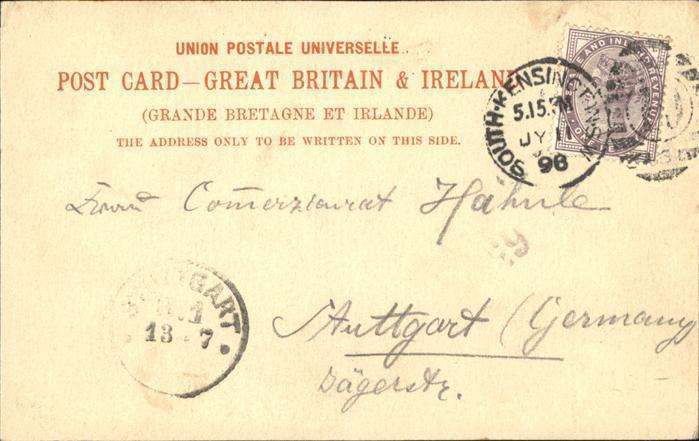 UNION POSTALE UNIVERSELLE.
POST CARD—GREAT BRITAIN & IRELAND
(GRANDE BRETAGNE ET IRLANDE)
THE ADDRESS ONLY TO BE WRITTEN ON THIS SIDE.
SOUTH·KENSINGTON
5.15.PM
JY 11
98
AND INLAND REVENUE
Comerzienrat Hähnle
STUTTGART
13 7
Stuttgart (Germany
Jägerstr.